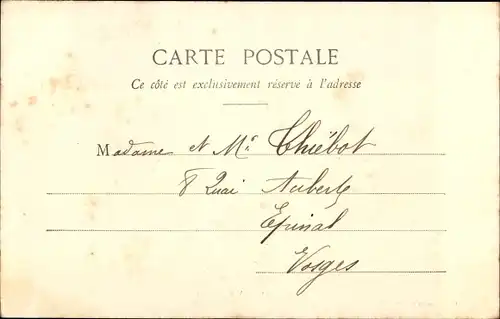 CARTE POSTALE
Ce côté est exclusivement réservé à l'adresse
Madame et Mr Thiébot
8 Quai Aubert
Epinal
Vosges